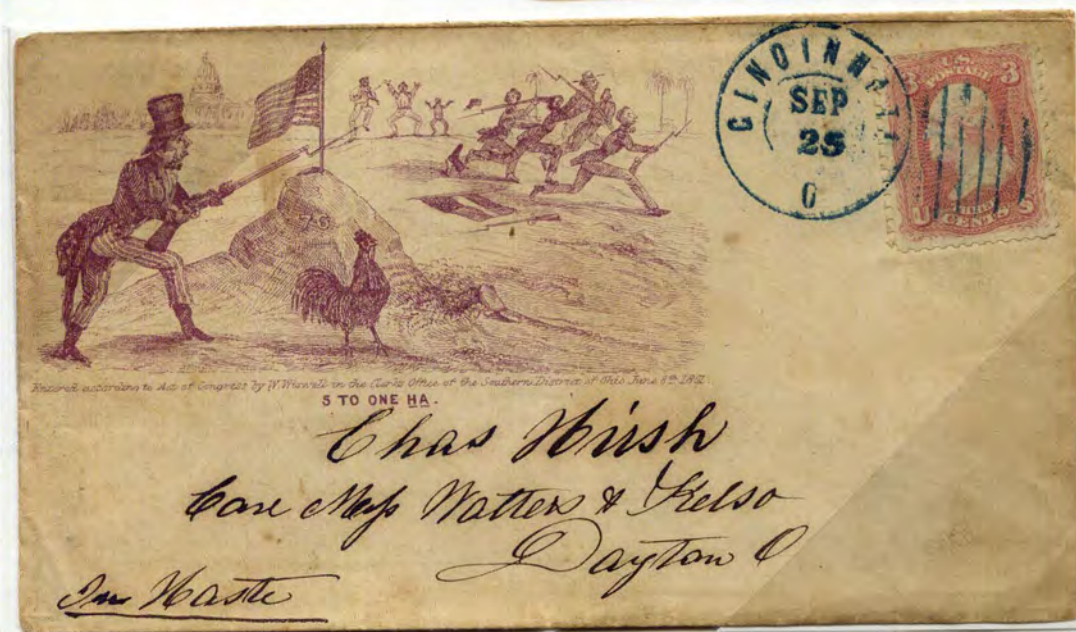 CINCINNATI
SEP
28
O
U.S.
POSTAGE
3 3
CENTS
76
Entered according to Act of Congress by W. Wiswell in the Clerks Office of the Southern District of Ohio June 6th 1861.
5 TO ONE HA.
Chas Hirsh
Care Mess Watters & Kelso
Dayton O
In Haste